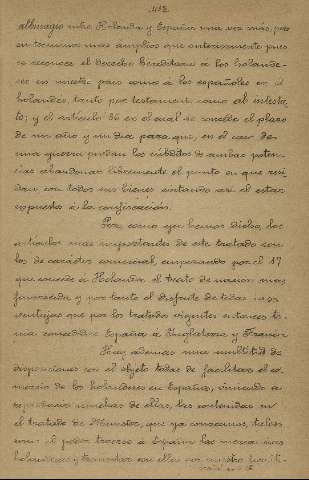 albinagio entre Holanda y España una vez más, pero
en terminos mas amplios que anteriormente pues
se reconoce el derecho hereditario á los holande-
ses en nuestro pais como á los españoles en el
holandes, tanto por testamento como ab intesta-
to; y el artículo 36 en el cual se concede el plazo
de un año y un dia para que, en el caso de
una guerra puedan los súbditos de ambas poten-
cias abandonar libremente el punto en que resi-
dan con todos sus bienes evitando asi el estar
expuestos á la confiscación.
Pero, como ya hemos dicho, los
artículos mas importantes de este tratado son
los de carácter comercial, empezando por el 17
que concede á Holanda el trato de nacion mas
favorecida y por tanto el disfrute de todas las
ventajas que por los tratados vigentes entonces te-
nia concedidas España á Inglaterra y Francia.
Hay ademas una multitud de
disposiciones con el objeto todas de facilitar el co-
mercio de los holandeses en España, viniendo á
reproducir muchas de ellas, las contenidas en
el tratado de Munster, que ya conocemos, tales
como el poder traerse á España las mercancias
holandesas y transitar con ellas por nuestro territo-